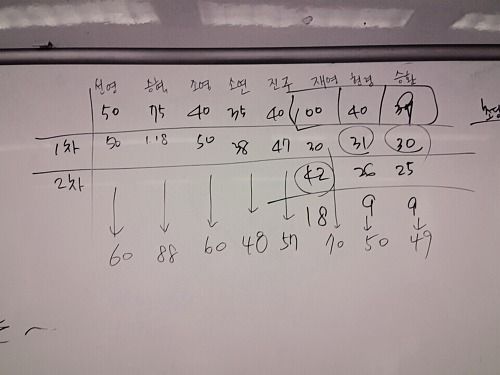 선영 승혁 소영 소연 진주 재영 현경 승환
50 75 40 35 40 100 40 39
1차 50 118 50 38 47 30 31 30
2차 42 26 25
18 9 9
60 88 60 40 57 70 50 49